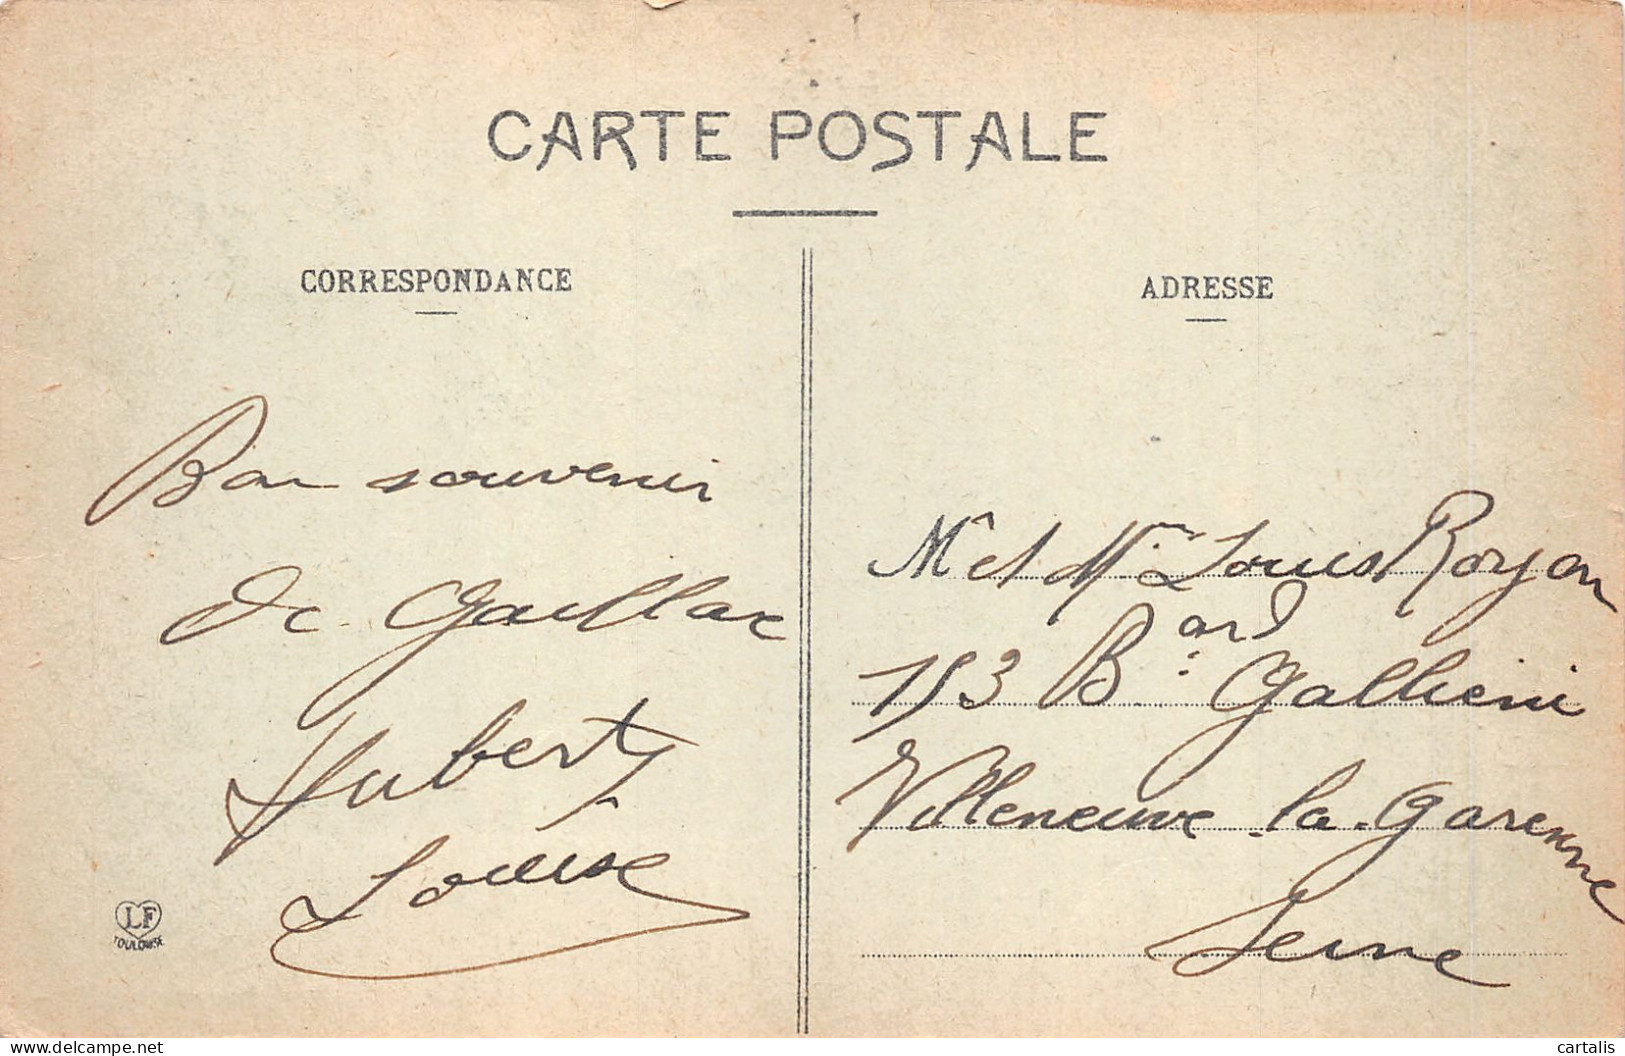 CARTE POSTALE
CORRESPONDANCE
ADRESSE
Bon souvenir
de Gaillac
Hubert
Louise
Mr et Mme Louis Royon
153 Bard Gallieni
Villeneuve-la-Garenne
Seine
LF
TOULOUSE
https://www.delcampe.net
cartalis